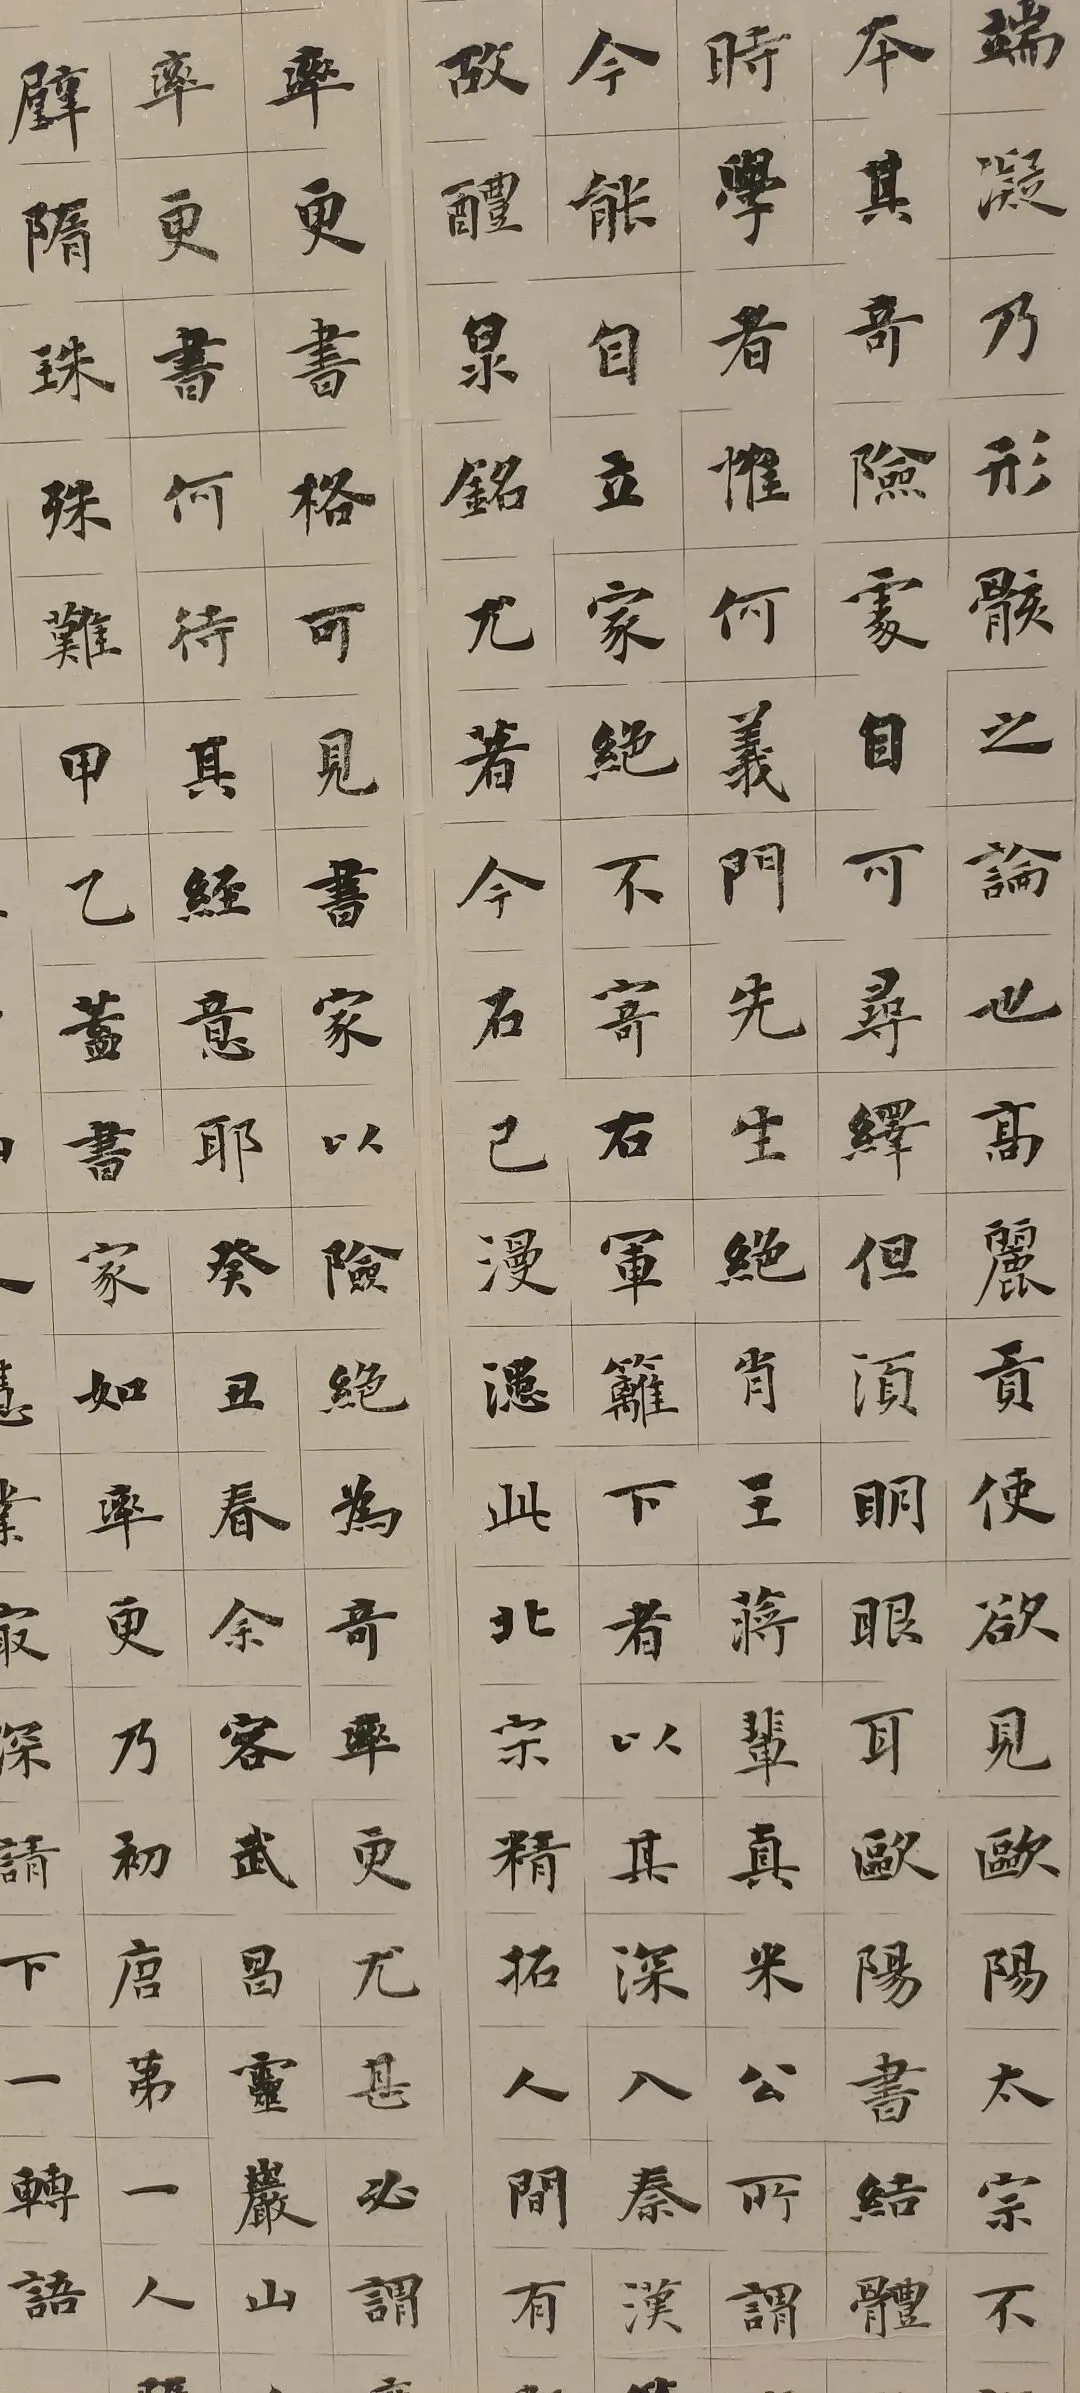 端凝乃形骸之論也高麗貢使欲見歐陽太宗不
本其奇險處自可尋繹但須明眼耳歐陽書結體
時學者惟何義門先生絕肖王蔣輩真米公所謂
今能自立家絕不寄右軍籬下者以其深入秦漢
故醴泉銘尤著今石已漫漶此北宗精拓人間有
率更書格可見書家以險絕為奇率更尤甚必謂
率更書何待其經意耶癸丑春余客武昌靈巖山
璧隋珠殊難甲乙蓋書家如率更乃初唐第一人
慧業最深請下一轉語